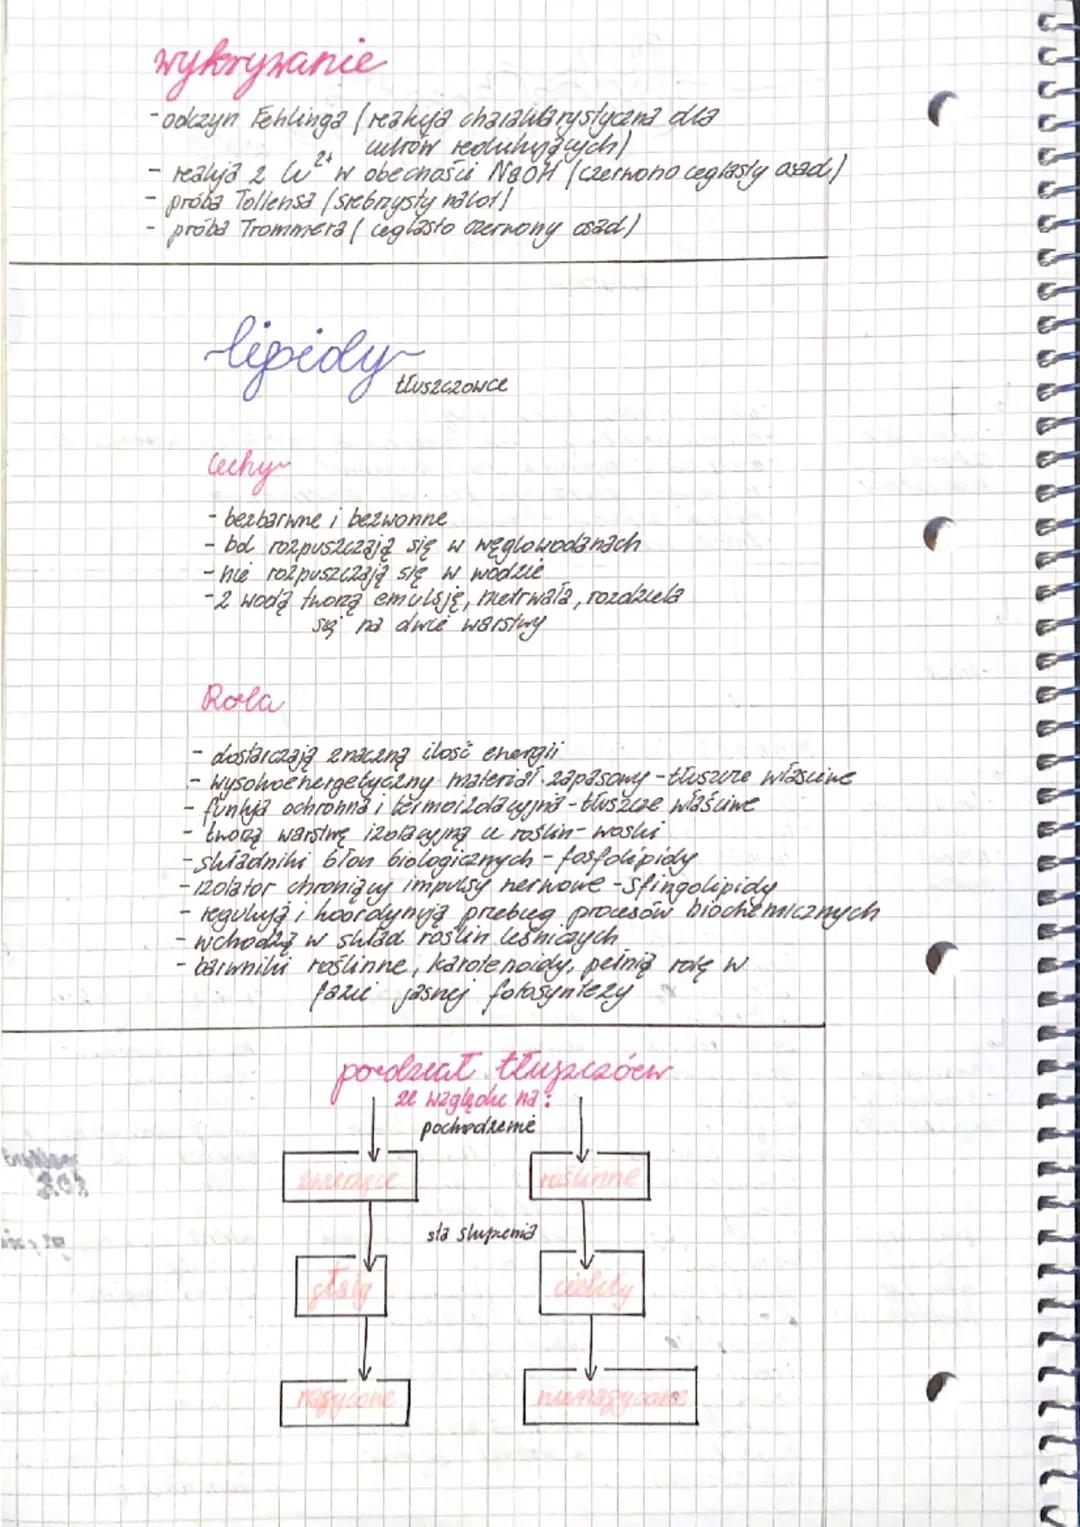 wykrywanie
- odczyn Fehlinga (reakcja charakterystyczna dla
cukrów redukujących)
- reakcja z Cu²⁺ w obecności NaOH (czerwono ceglasty osad)
- próba Tollensa (srebrzysty nalot)
- próba Trommera (ceglasto czerwony osad)
lipidy
tłuszczowce
Cechy
- bezbarwne i bezwonne
- bd rozpuszczają się w węglowodanach
- nie rozpuszczają się w wodzie
- z wodą tworzą emulsję, nietrwała, rozdziela
się na dwie warstwy
Rola
- dostarczają znaczną ilość energii
- wysokoenergetyczny materiał zapasowy - tłuszcze właściwe
- funkcja ochronna i termoizolacyjna - tłuszcze właściwe
- tworzą warstwę izolacyjną u roślin - woski
- składniki błon biologicznych - fosfolipidy
- izolator chroniący impulsy nerwowe - sfingolipidy
- regulują i koordynują przebieg procesów biochemicznych
- wchodzą w skład roślin leśniczych
- barwniki roślinne, karotenoidy, pełnią rolę w
fazie jasnej fotosyntezy
podział tłuszczów
ze względu na:
pochodzenie
zwierzęce roślinne
sta skupienia
stały ciekły
nasycone nienasycone